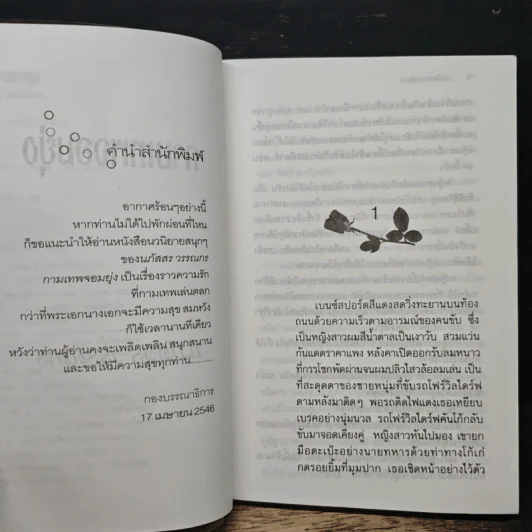 คำนำสำนักพิมพ์
อากาศร้อนๆอย่างนี้
หากท่านไม่ได้ไปพักผ่อนที่ไหน
ก็ขอแนะนำให้อ่านหนังสือนวนิยายสนุกๆ
ของนภัสสร วรรณกร
กามเทพจอมยุ่ง เป็นเรื่องราวความรัก
ที่กามเทพเล่นตลก
กว่าที่พระเอกนางเอกจะมีความสุข สมหวัง
ก็ใช้เวลานานทีเดียว
หวังว่าท่านผู้อ่านคงจะเพลิดเพลิน สนุกสนาน
และขอให้มีความสุขทุกท่าน........
กองบรรณาธิการ
17 เมษายน 2546
1
เบนซ์สปอร์ตสีแดงสดวิ่งทะยานบนท้อง
ถนนด้วยความเร็วตามอารมณ์ของคนขับ ซึ่ง
เป็นหญิงสาวผมสีน้ำตาลเป็นเงาวับ สวมแว่น
กันแดดราคาแพง หลังคาเปิดออกรับลมหนาว
ที่กรรโชกพัดผ่านจนผมปลิวไสวล้อลมเล่น เป็น
ที่สะดุดตาของชายหนุ่มที่ขับรถโฟร์วีลไดร์ฟ
ตามหลังมาติดๆ พอรถติดไฟแดงเธอเหยียบ
เบรคอย่างนุ่มนวล รถโฟร์วีลไดร์ฟคันโก้กลับ
ขับมาจอดเคียงคู่ หญิงสาวหันไปมอง เขายก
มือตะเบ๊ะอย่างนายทหารด้วยท่าทางโก้เก๋
กดรอยยิ้มที่มุมปาก เธอเชิดหน้าอย่างไว้ตัว